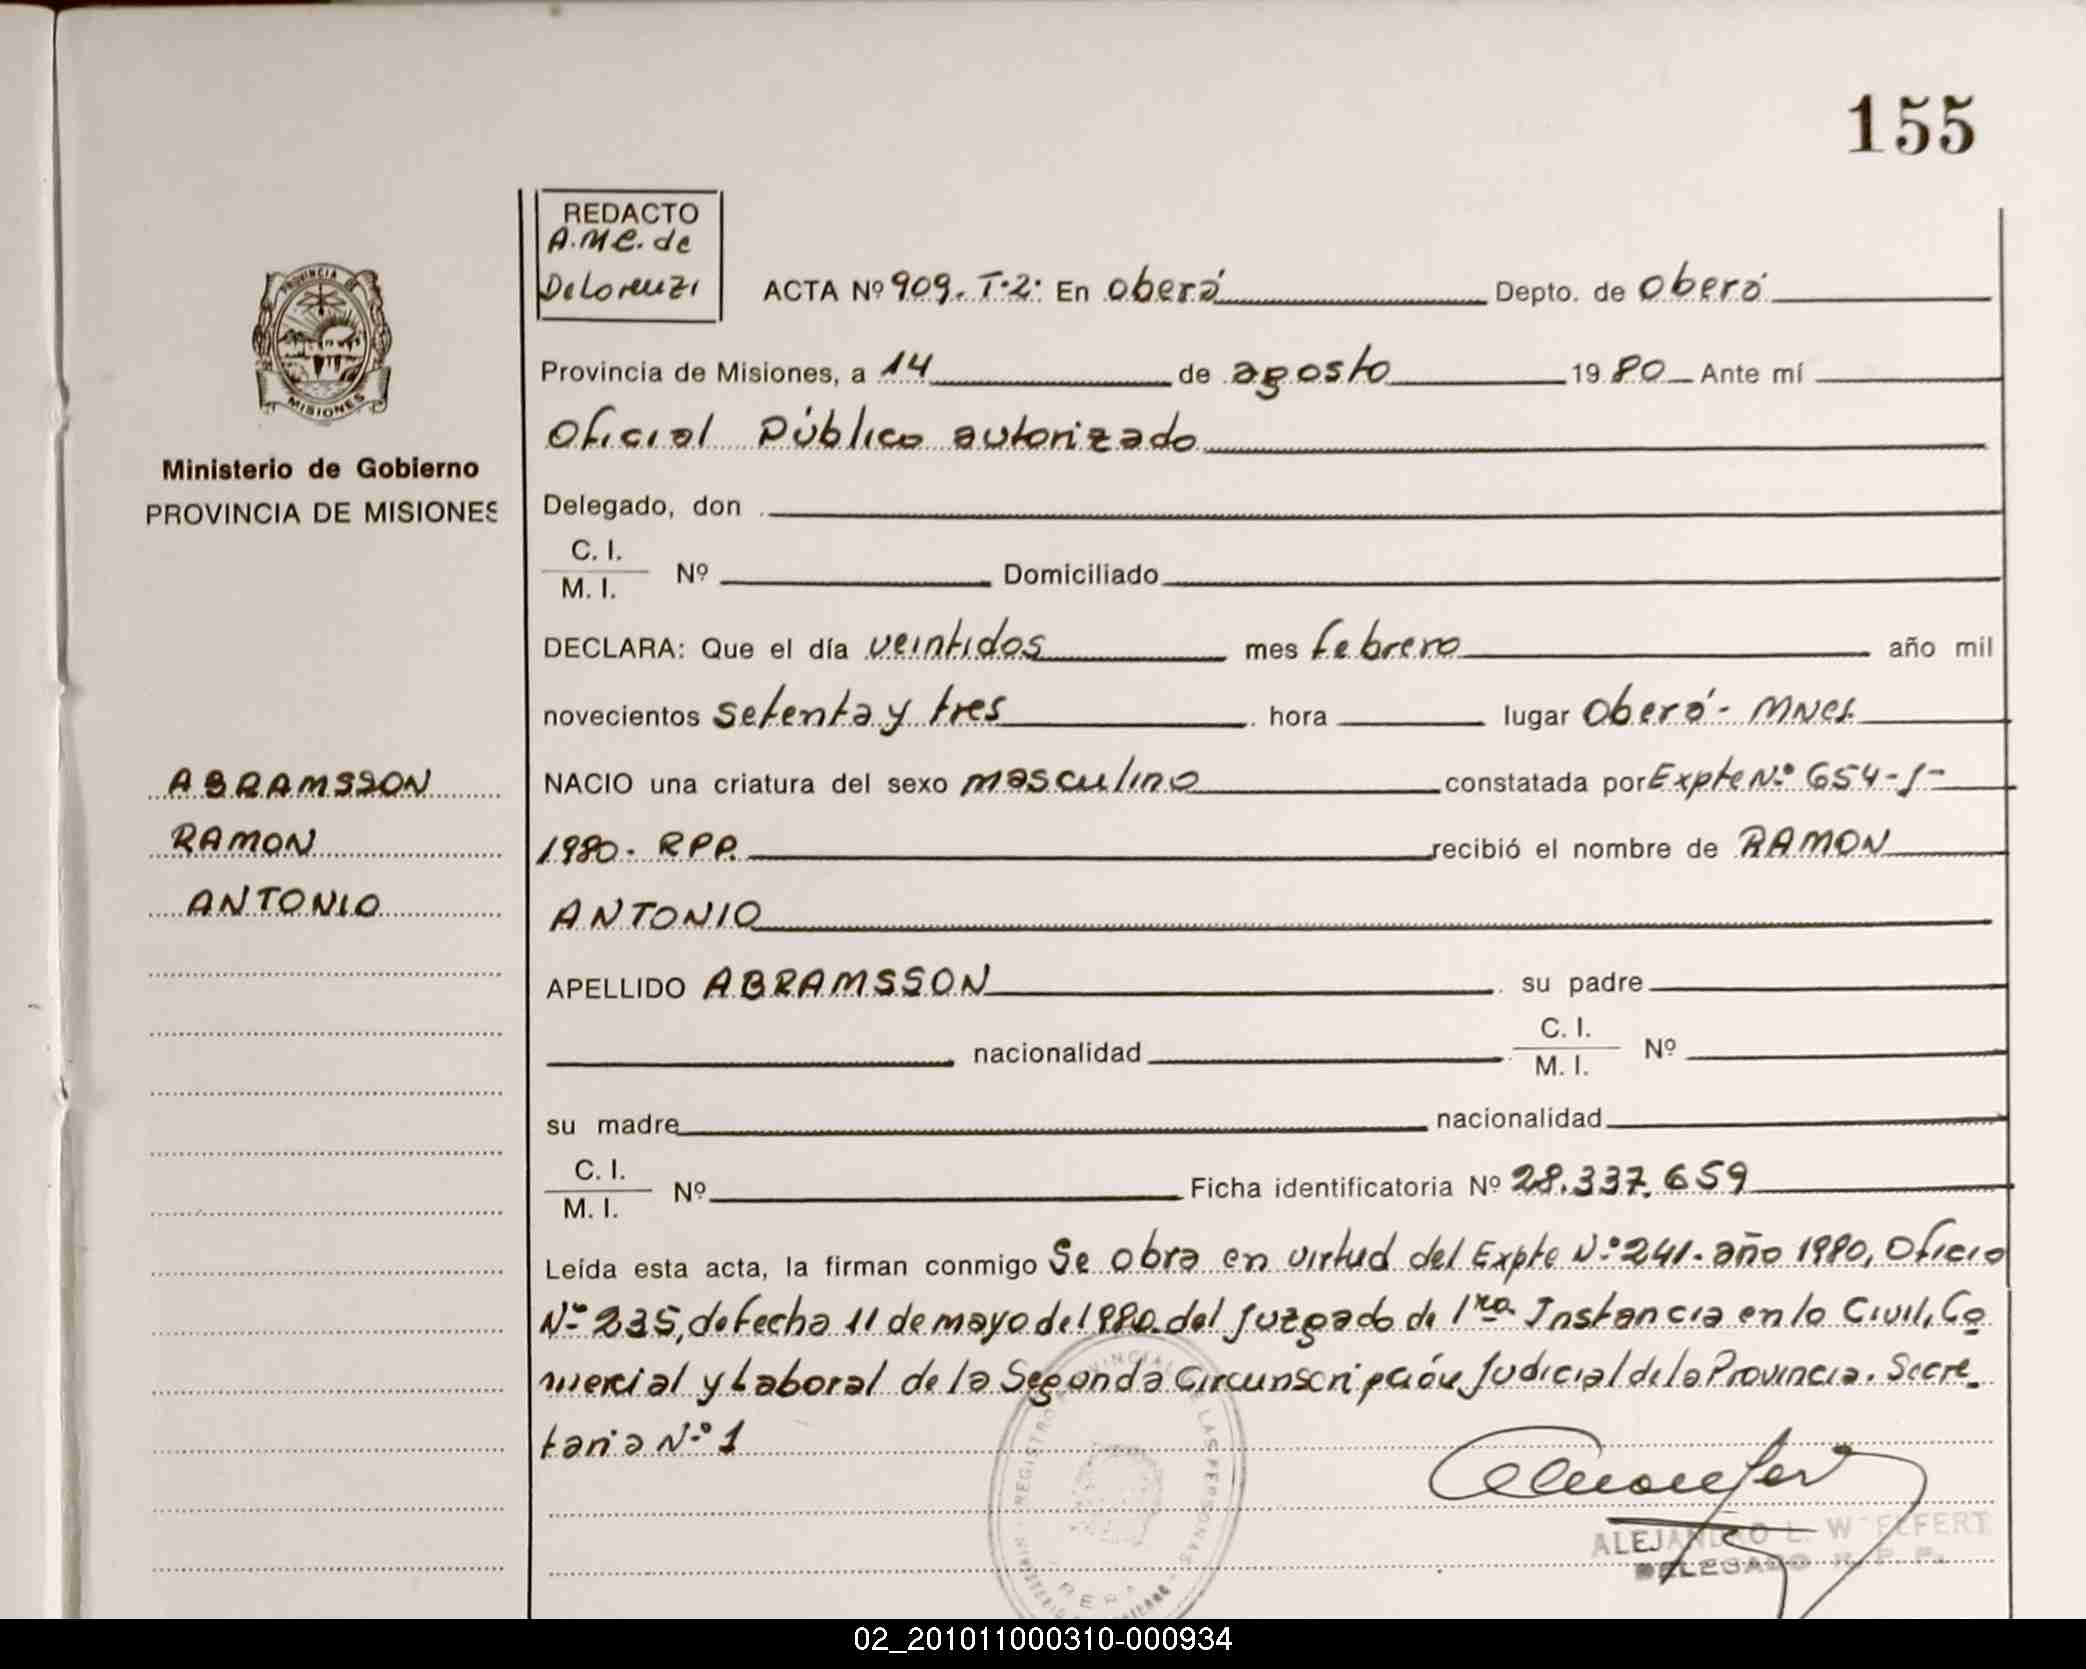 155
REDACTO
A.M.C. de
DeLorenzi
ACTA Nº 909. T.2: En Oberá Depto. de Oberá
Provincia de Misiones, a 14 de agosto 1980 Ante mí
Oficial Público autorizado
PROVINCIA DE
MISIONES
Ministerio de Gobierno
PROVINCIA DE MISIONES
Delegado, don
C. I.
M. I. Nº Domiciliado
DECLARA: Que el día veintidos mes febrero año mil
novecientos setenta y tres hora lugar Oberá - Mnes.
ABRAMSSON
RAMON
ANTONIO
NACIO una criatura del sexo masculino constatada por Expte Nº 654-J-
1980- RPP. recibió el nombre de RAMON
ANTONIO
APELLIDO ABRAMSSON su padre
nacionalidad C. I.
M. I. Nº
su madre nacionalidad
C. I.
M. I. Nº Ficha identificatoria Nº 28.337.659
Leída esta acta, la firman conmigo Se obra en virtud del Expte Nº 241- año 1980, Oficio
Nº 235, de fecha 11 de mayo de 1980 del Juzgado de 1ra Instancia en lo Civil, Co
mercial y Laboral de la Segunda Circunscripción Judicial de la Provincia. Secre_
taria Nº 1
REGISTRO PROVINCIAL DE LAS PERSONAS
ALEJANDRO L. WELFERT
DELEGADO R. P. P.
02_201011000310-000934